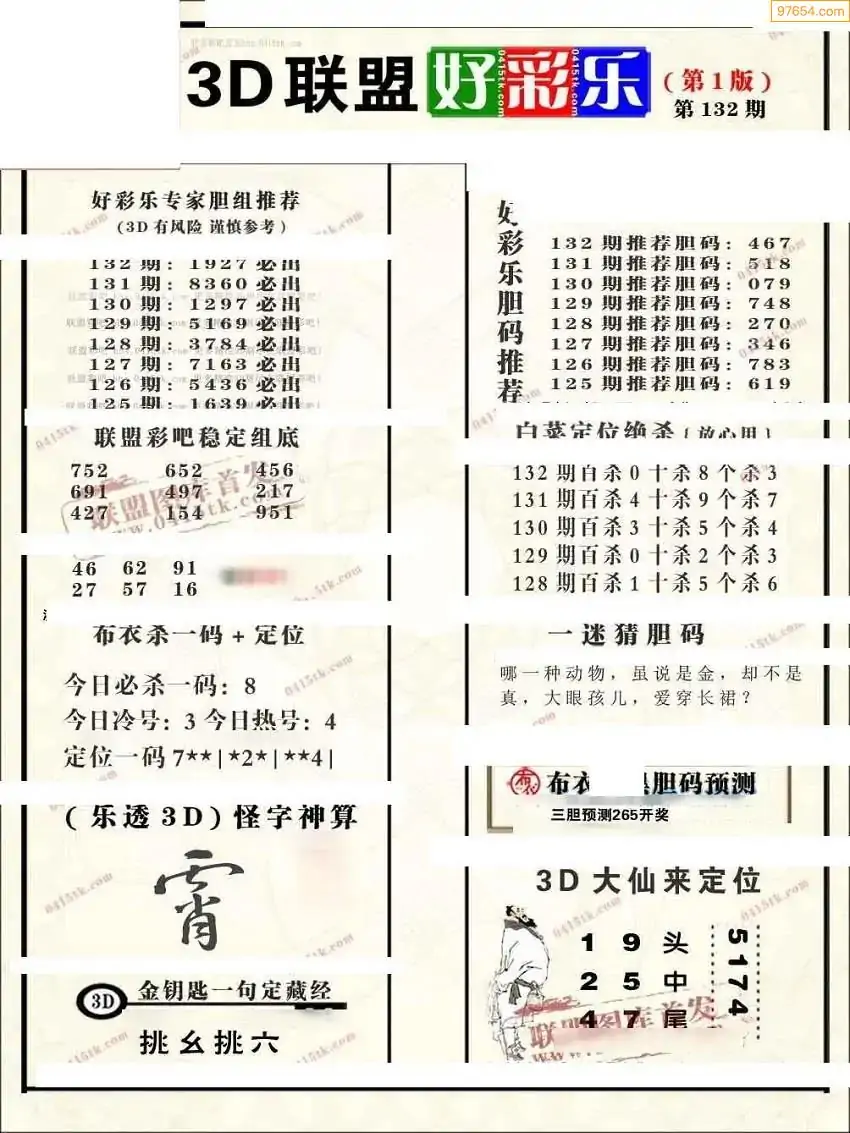 97654.com
3D联盟好彩乐
(第1版)
第132期
好彩乐专家胆组推荐
(3D有风险 谨慎参考)
132期: 1927必出
131期: 8360必出
130期: 1297必出
129期: 5169必出
128期: 3784必出
127期: 7163必出
126期: 5436必出
125期: 1639必出
联盟彩吧稳定组底
752 652 456
691 497 217
427 154 951
46 62 91
27 57 16
布衣杀一码+定位
今日必杀一码: 8
今日冷号: 3 今日热号: 4
定位一码 7**|*2*|**4|
(乐透3D)怪字神算
霄
3D 金钥匙一句定藏经
挑幺挑六
好彩乐胆码推荐
132期推荐胆码: 467
131期推荐胆码: 518
130期推荐胆码: 079
129期推荐胆码: 748
128期推荐胆码: 270
127期推荐胆码: 346
126期推荐胆码: 783
125期推荐胆码: 619
白菜定位绝杀(放心用)
132期百杀0十杀8个杀3
131期百杀4十杀9个杀7
130期百杀3十杀5个杀4
129期百杀0十杀2个杀3
128期百杀1十杀5个杀6
一迷猜胆码
哪一种动物，虽说是金，却不是
真，大眼孩儿，爱穿长裙？
布衣 胆码预测
三胆预测265开奖
3D大仙来定位
1 9 头
2 5 中
4 7 尾
5174
联盟图库首发
www.0415tk.com
0415tk.com